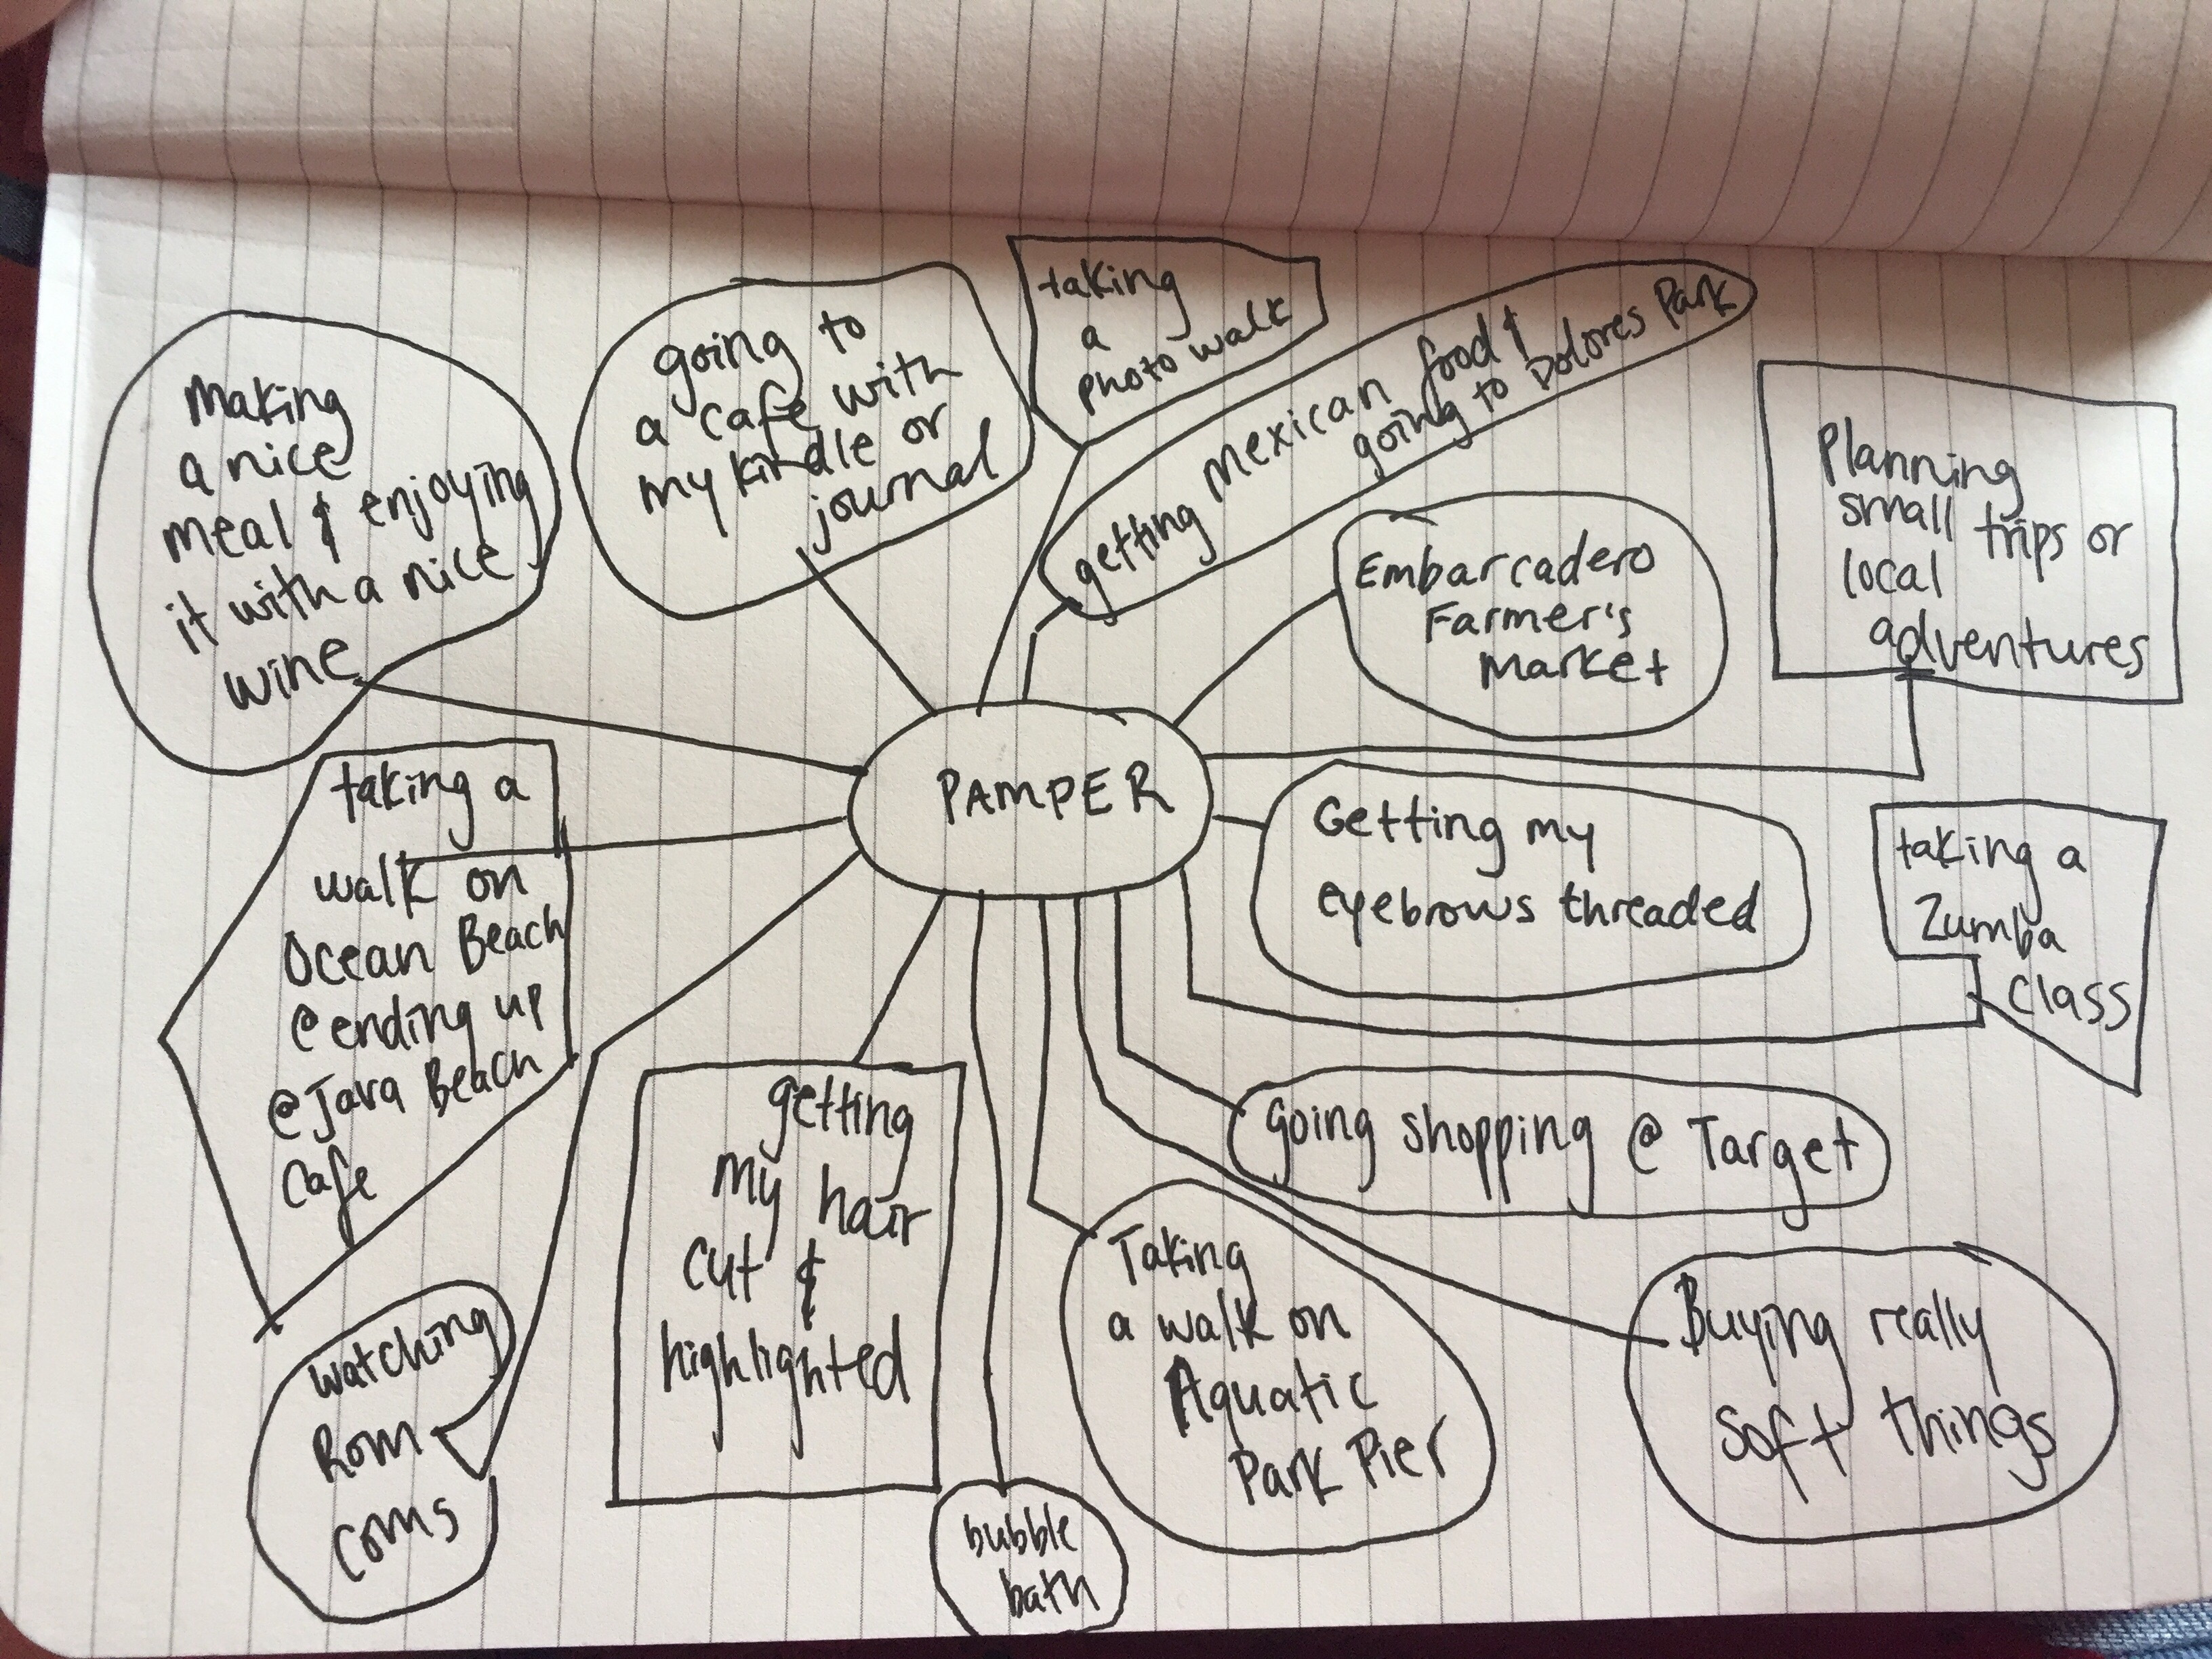 making
a nice
meal & enjoying
it with a nice
wine
going to
a cafe with
my kindle or
journal
taking
a
photo walk
getting mexican food &
going to Dolores Park
Embarcadero
Farmer's
Market
Planning
small trips or
local
adventures
PAMPER
taking a
walk on
Ocean Beach
@ ending up
@ Java Beach
Cafe
Getting my
eyebrows threaded
taking a
Zumba
Class
going shopping @ Target
watching
Rom
Coms
getting
my hair
cut &
highlighted
bubble
bath
Taking
a walk on
Aquatic
Park Pier
Buying really
Soft things